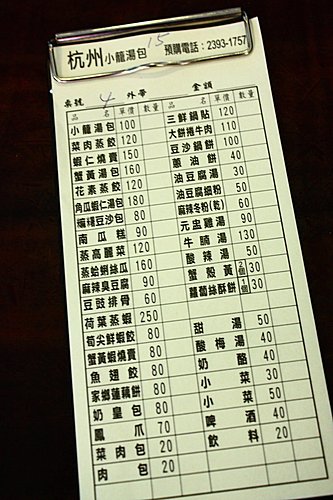 杭州小籠湯包 15 預購電話：2393-1757
桌號 4 外帶 金額
品 名 單價 數量 品 名 單價 數量
小籠湯包 100
菜肉蒸餃 120
蝦仁燒賣 150
蟹黃湯包 160
花素蒸餃 120
角瓜蝦仁湯包 180
擂糯豆沙包 80
南瓜糕 90
蒸高麗菜 120
蒸蛤蜊絲瓜 160
麻辣臭豆腐 90
豆豉排骨 60
荷葉蒸蝦 250
筍尖鮮蝦餃 80
蟹黃蝦燒賣 80
魚翅餃 80
家鄉蓮藕餅 80
奶皇包 80
鳳爪 70
菜肉包 20
肉包 20
三鮮鍋貼 120
大餅捲牛肉 110
豆沙鍋餅 100
蔥油餅 40
油豆腐湯 30
油豆腐細粉 50
麻辣冬粉(乾) 60
元盅雞湯 90
牛腩湯 130
酸辣湯 50
蟹殼黃 2個 30
蘿蔔絲酥餅 1個 30
甜湯 50
酸梅湯 40
奶酪 40
小菜 30
小菜 50
啤酒 40
飲料 20